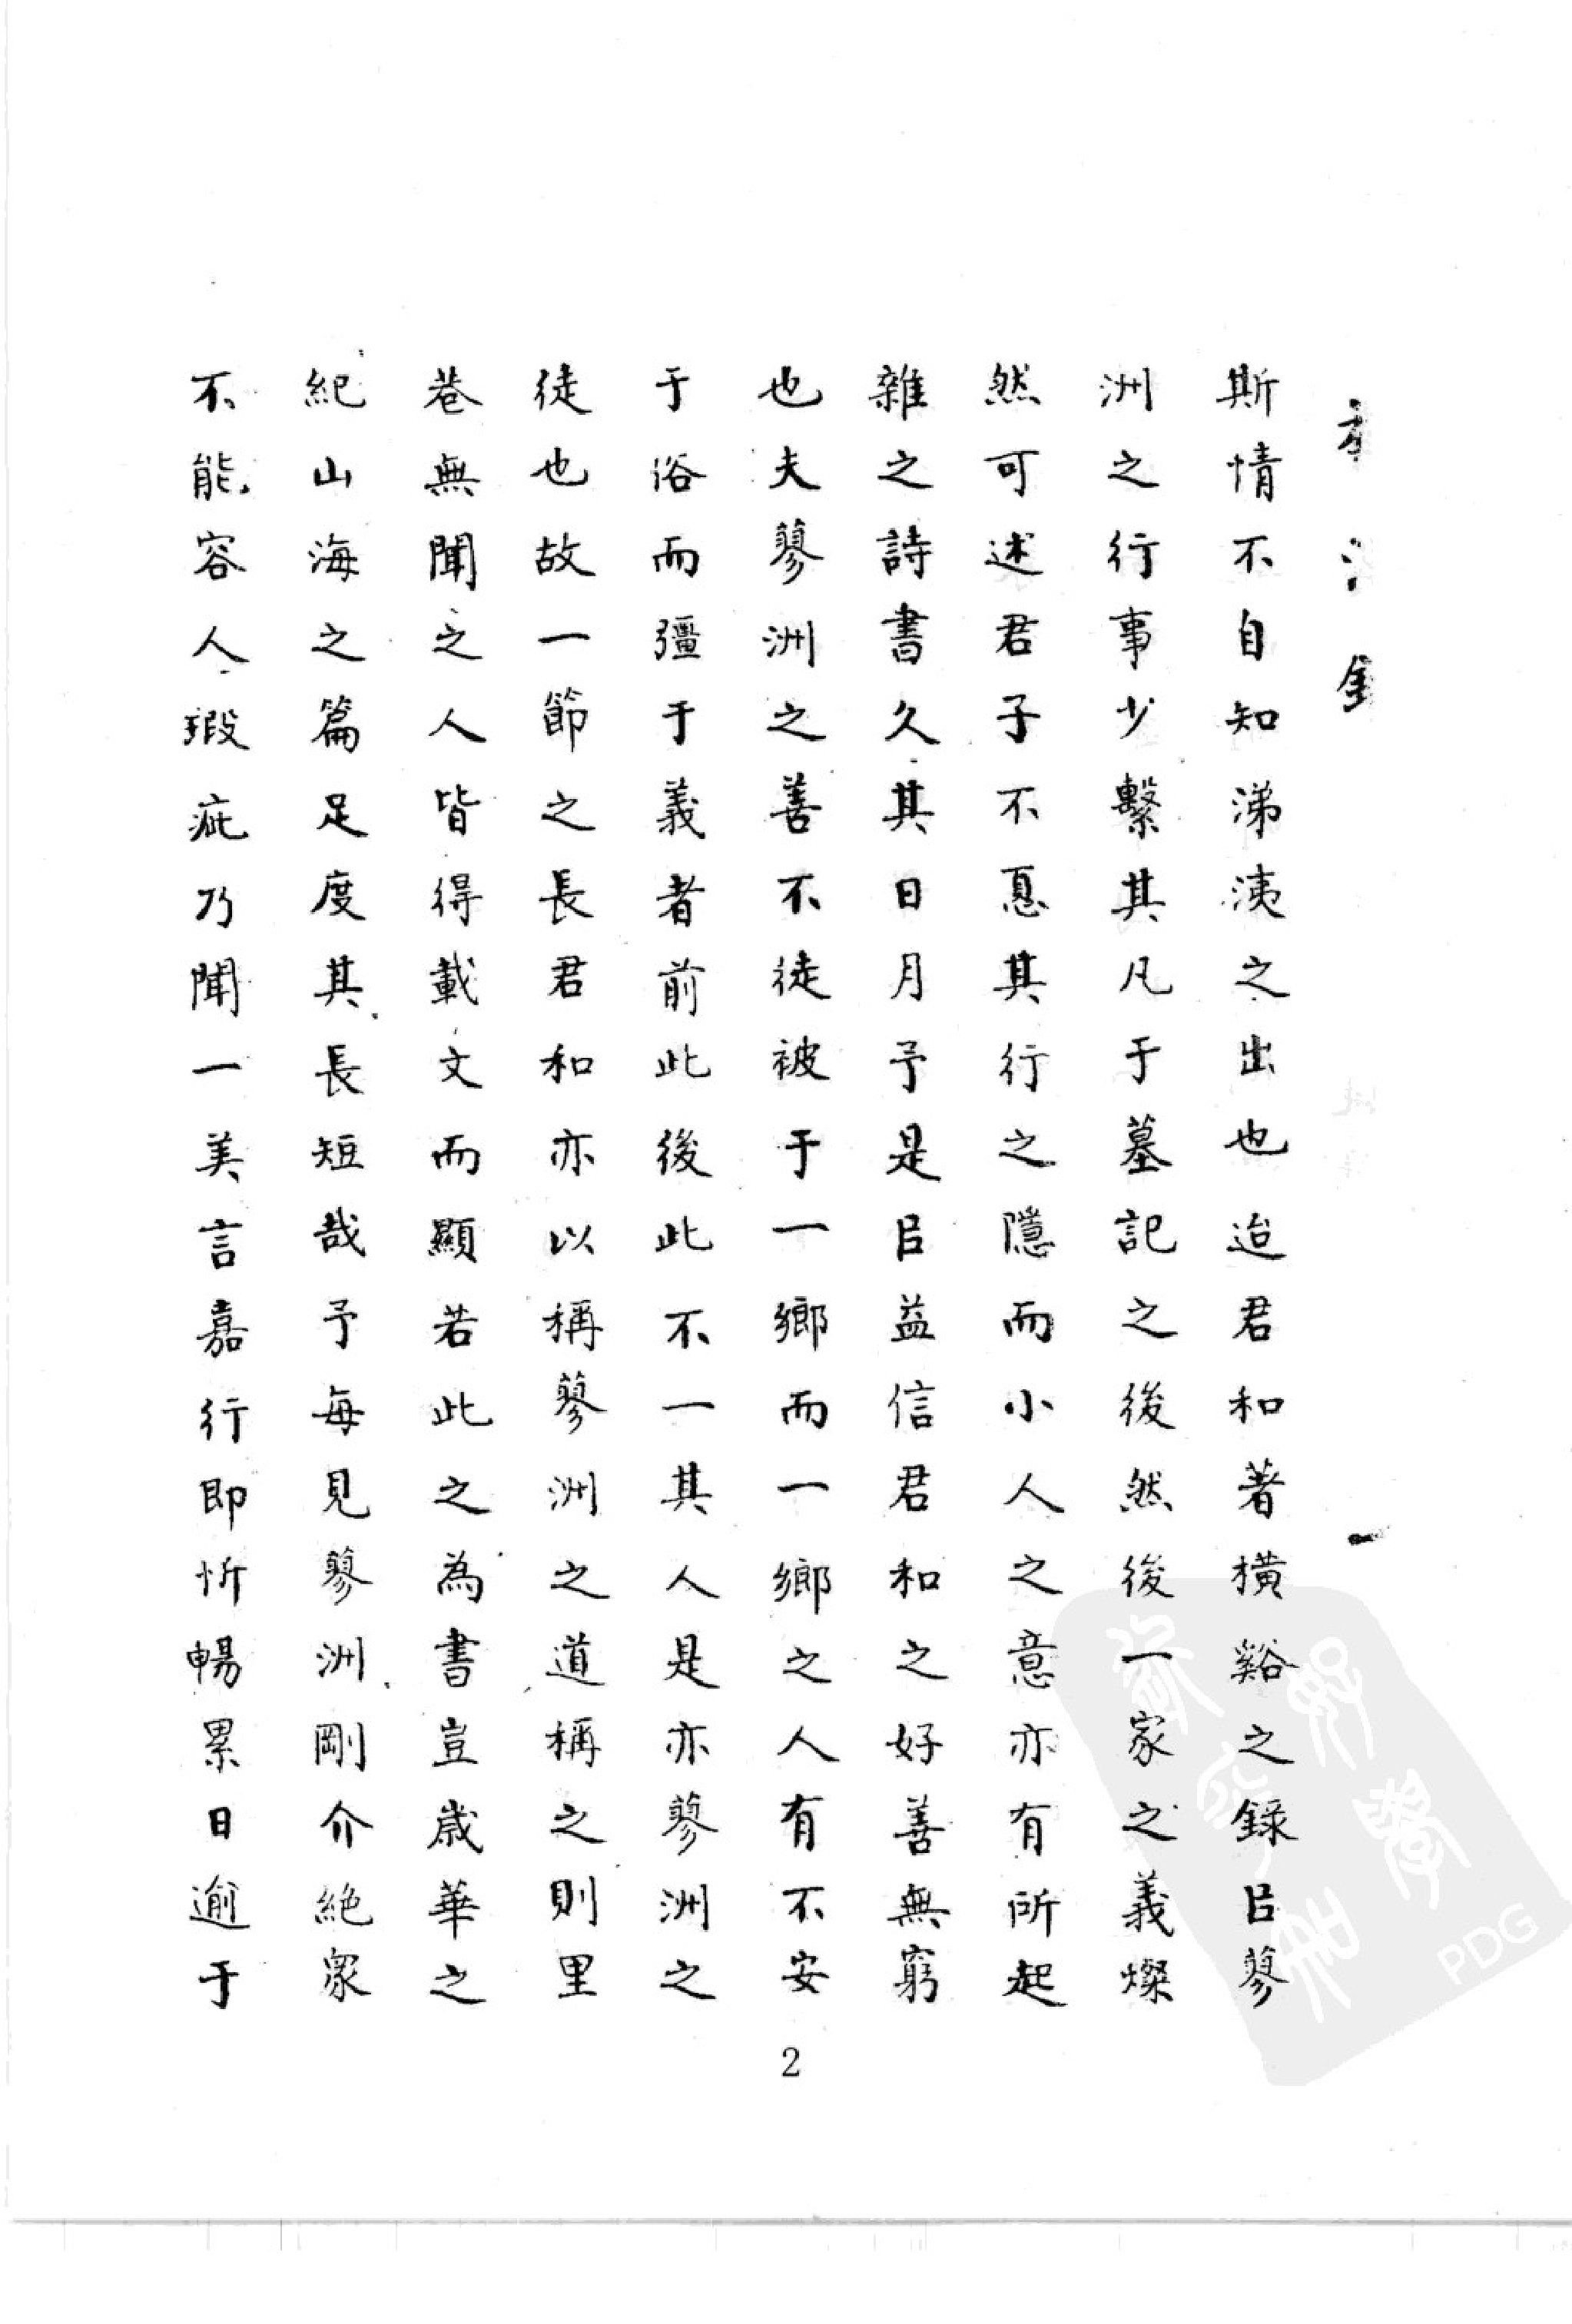 斯情不自知涕洟之出也迨君和著橫谿之錄㠯蓼
洲之行事少繫其凡于墓記之後然後一家之義燦
然可述君子不悥其行之隱而小人之意亦有所起
雜之詩書久其日月予是㠯益信君和之好善無窮
也夫蓼洲之善不徒被于一鄉而一鄉之人有不安
于俗而彊于義者前此後此不一其人是亦蓼洲之
徒也故一節之長君和亦以稱蓼洲之道稱之則里
巷無聞之人皆得載文而顯若此之為書豈歲華之
紀山海之篇足度其長短哉予每見蓼洲剛介絕眾
不能容人瑕疵乃聞一美言嘉行即忻暢累日逾于
2
PDG